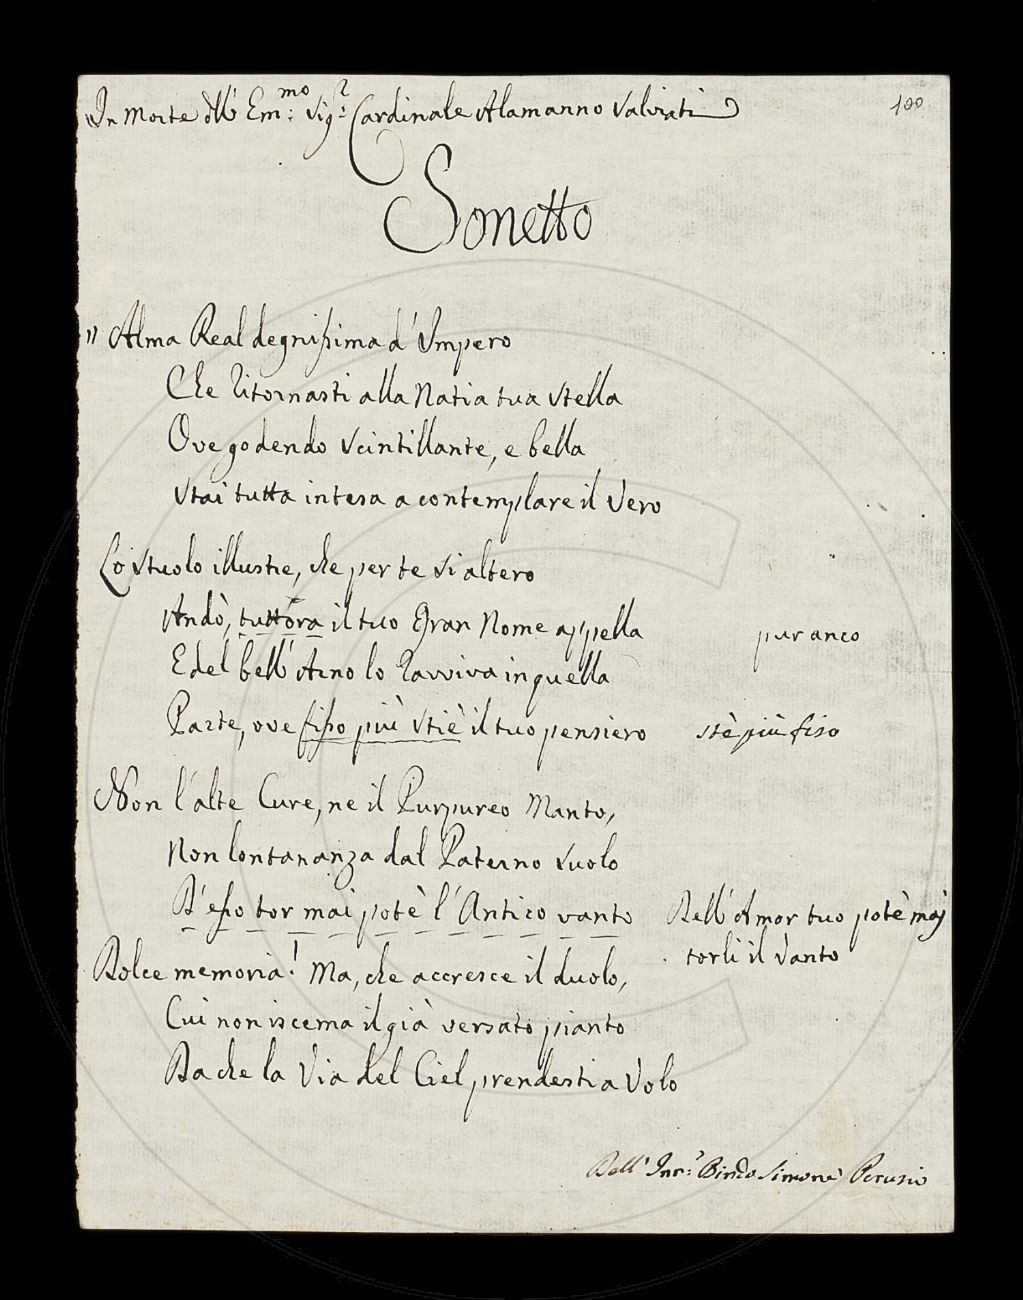 In Morte dell' Em:mo Sigr: Cardinale Alamanno Salviati
100
Sonetto
" Alma Real degnissima d' Impero
Che ritornasti alla Natia tua Stella
Ove godendo Scintillante, e bella
Stai tutta intesa a contemplare il Vero
Lo Stuolo illustre, che per te si altero
Andò, tuttora il tuo Gran Nome appella pur anco
E del bell' Arno lo ravviva in quella
Parte, ove fisso più stiè il tuo pensiero stè più fiso
Non l'alte Cure, ne il Purpureo Manto,
Non lontananza dal Paterno Suolo
D'esso tor mai potè l'Antico vanto Dell' Amor tuo potè maj
torli il Vanto
Dolce memoria! Ma, che accresce il duolo,
Cui non iscema il già versato pianto
Da che la Via del Ciel prendesti a Volo
Dell' Binda Simone Peruzio